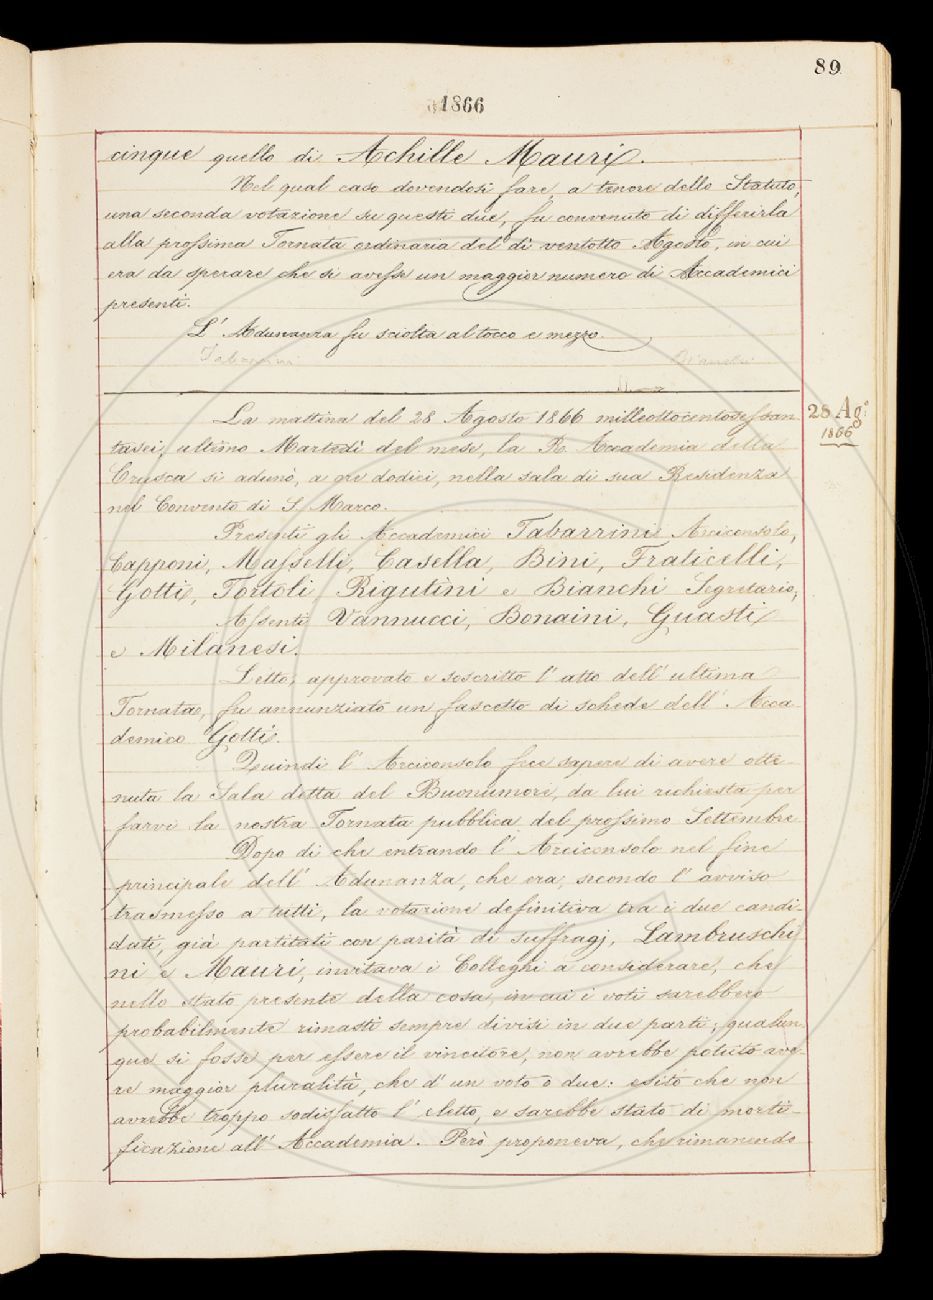 89
1866
cinque quello di Achille Mauri.
Nel qual caso dovendosi fare, a tenore dello Statuto,
una seconda votazione su questi due, fu convenuto di differirla
alla prossima Tornata ordinaria del dì ventotto Agosto, in cui
era da sperare che si avesse un maggior numero di Accademici
presenti.
L'Adunanza fu sciolta al tocco e mezzo.
Tabarrini Bianchi
28 Ag.º
1866
La mattina del 28 Agosto 1866 milleottocentosessan
tasei, ultimo Martedì del mese, la R. Accademia della
Crusca si adunò, a ore dodici, nella sala di sua Residenza
nel Convento di S. Marco.
Presenti gli Accademici Tabarrini Arciconsolo,
Capponi, Masselli, Casella, Bini, Fraticelli,
Gotti, Tortoli Rigutini e Bianchi Segretario;
Assenti Vannucci, Bonaini, Guasti
e Milanesi.
Letto, approvato e soscritto l'atto dell'ultima
Tornata, fu annunziato un fascetto di schede dell'Acca
demico Gotti.
Quindi l'Arciconsolo fece sapere di avere otte-
nuta la Sala detta del Buonumore, da lui richiesta per
farvi la nostra Tornata pubblica del prossimo Settembre
Dopo di che entrando l'Arciconsolo nel fine
principale dell'Adunanza, che era, secondo l'avviso
trasmesso a tutti, la votazione definitiva tra i due candi-
dati, già partitati con parità di suffragj, Lambruschi
ni e Mauri, invitava i Colleghi a considerare, che
nello stato presente della cosa, in cui i voti sarebbero
probabilmente rimasti sempre divisi in due parti, qualun
que si fosse per essere il vincitore, non avrebbe potuto ave
re maggior pluralità, che d'un voto o due: esito che non
avrebbe troppo sodisfatto l'eletto, e sarebbe stato di morti-
ficazione all'Accademia. Però proponeva, che rimanendo